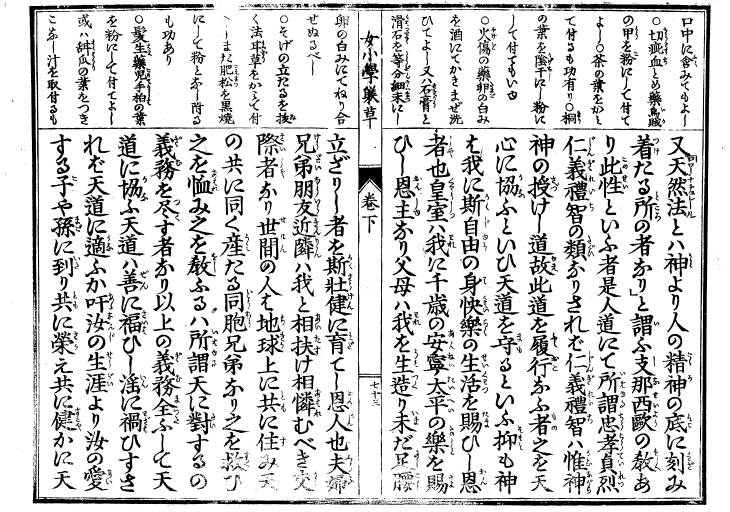 口中に含みてもよし
○切疵血とめ藥烏賊
の甲を粉にして付て
よし○茶の葉をかみ
て付るも功有り○桐
の葉を陰干にし粉に
して付てもいゝ
○火傷の藥卵の白み
を酒にてかきまぜ洗
ひてよし又ハ石膏と
滑石を等分細末にし
又天然法とハ神より人の精神の底に刻み
着たる所の者なり」と謂ふ支那西歐の敎あ
り此性といふ者是人道にて所謂忠孝貞烈
仁義禮智の類なりされば仁義禮智ハ惟神
神の授けし道故此道を履行なふ者之を天
心に協ふといひ天道を守るといふ抑も神
は我に斯自由の身快樂の生活を賜ひし恩
者也皇室ハ我に千歳の安寧太平の樂を賜
ひし恩主なり父母ハ我を生造り未だ足腰
女小學襲草
卷下
七十三
卵の白みにてねり合
せぬるべし
○そげの立たるを拔
く法耳草をかみて付
にして粉となし附る
も功あり
○髮生藥兒手柏の葉
を粉にして付てよし
或ハ絲瓜の葉をつき
こなし汁を取付るも
立ざりし者を斯壯健に育てし恩人也夫婦
兄弟朋友近隣ハ我と相扶け相憐むべき交
際者なり世間の人も地球上に共に住み天
の共に同く産たる同胞兄弟なり之を救ひ
之を恤み之を敎ふるハ所謂天に對するの
義務を尽す者なり以上の義務全ふして天
道に協ふ天道ハ善に福ひし淫に禍ひすさ
れば天道に適ふか吁汝の生涯より汝の愛
する子や孫に到り共に榮え共に健かに天